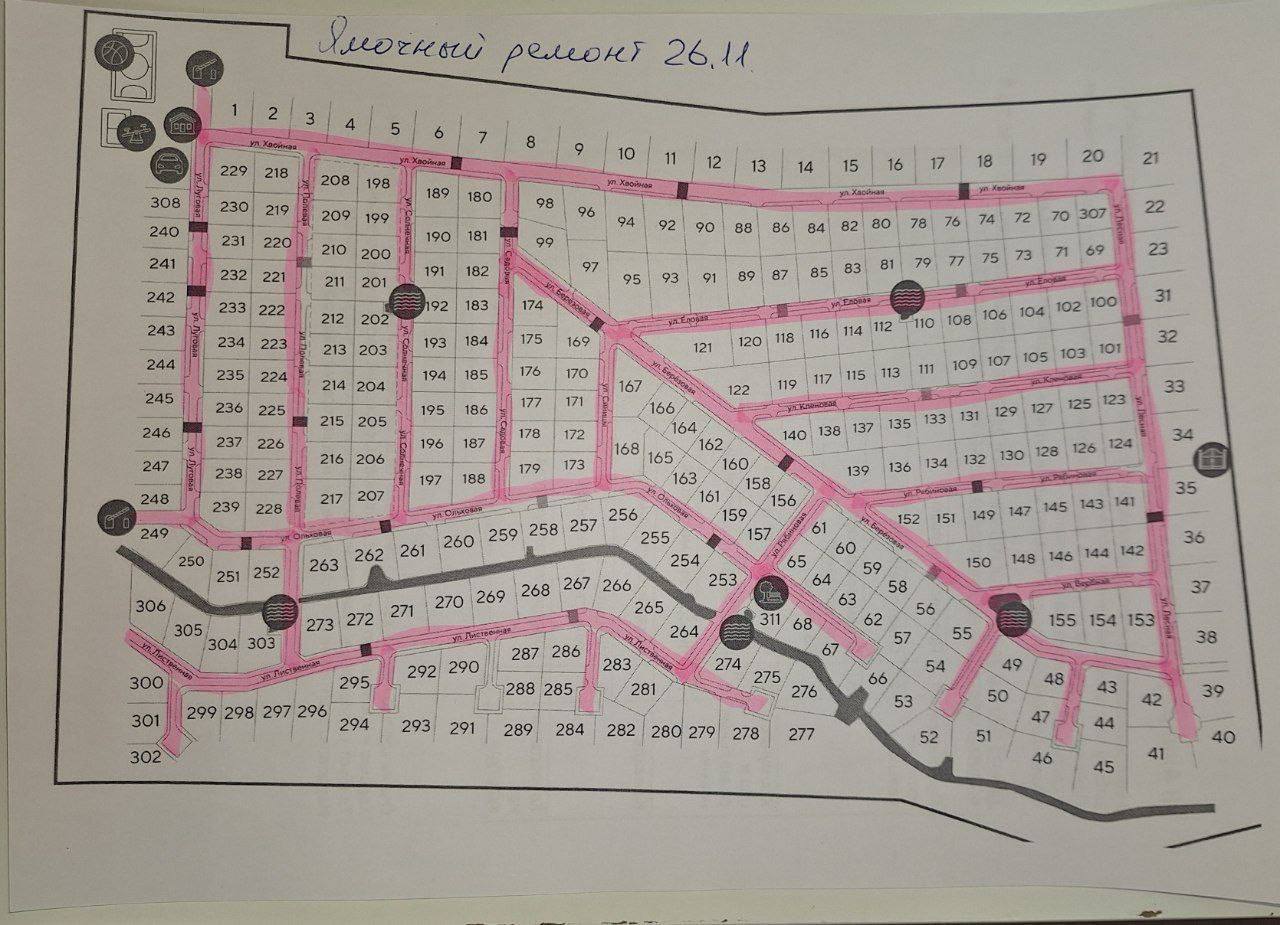 Ямочный ремонт 26.11.
1 2 3 4 5 6 7 8 9 10 11 12 13 14 15 16 17 18 19 20 21
ул. Хвойная ул. Хвойная ул. Хвойная ул. Хвойная ул. Хвойная
229 218 208 198 189 180 98 96 94 92 90 88 86 84 82 80 78 76 74 72 70 307 22
308 230 219 209 199 190 181 99 97 95 93 91 89 87 85 83 81 79 77 75 73 71 69 23
240 231 220 210 200 191 182
241 232 221 211 201 192 183 174
242 233 222 212 202 193 184 175 169
243 234 223 213 203 194 185 176 170
244 235 224 214 204 195 186 177 171
245 236 225 215 205 196 187 178 172
246 237 226 216 206 197 188 179 173
247 238 227 217 207
248 239 228
ул. Луговая ул. Луговая ул. Луговая
ул. Полевая ул. Полевая ул. Полевая
ул. Солнечная ул. Солнечная ул. Солнечная
ул. Садовая ул. Садовая
ул. Синицы
ул. Берёзовая ул. Берёзовая ул. Берёзовая
ул. Еловая ул. Еловая ул. Еловая
121 120 118 116 114 112 110 108 106 104 102 100 31
122 119 117 115 113 111 109 107 105 103 101 32
ул. Кленовая ул. Кленовая
140 138 137 135 133 131 129 127 125 123 33
139 136 134 132 130 128 126 124 34
ул. Рябиновая ул. Рябиновая ул. Рябиновая
152 151 149 147 145 143 141 35
150 148 146 144 142 36
ул. Вербная
155 154 153 37
38
ул. Лесная ул. Лесная ул. Лесная
167 166 164 162 160 158 156
168 165 163 161 159 157
ул. Ольховая ул. Ольховая ул. Ольховая
249 250 251 252 263 262 261 260 259 258 257 256 255 254 253
61 60 59 58 56 55
65 64 63 62 57 54
311 68 67 66 53 52
306 305 304 303 273 272 271 270 269 268 267 266 265 264
ул. Лиственная ул. Лиственная ул. Лиственная ул. Лиственная
300 301 302 299 298 297 296 295 294
292 290 287 286 283
293 291 288 285 281
289 284 282 280 279 278 277
274 275 276
49 48 43 42 39
50 47 44 40
51 46 45 41